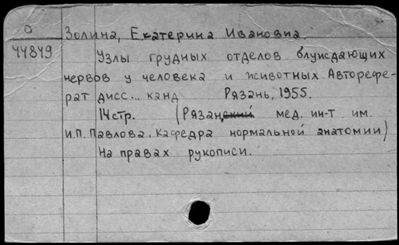 О Золина, Екатерина Ивановна.
44849 Узлы грудных отделов блуждающих
нервов у человека и животных Авторефе-
рат дисс... канд Рязань, 1955.
14стр. (Рязанский мед. ин-т им.
И.П. Павлова. Кафедра нормальной анатомии)
На правах рукописи.